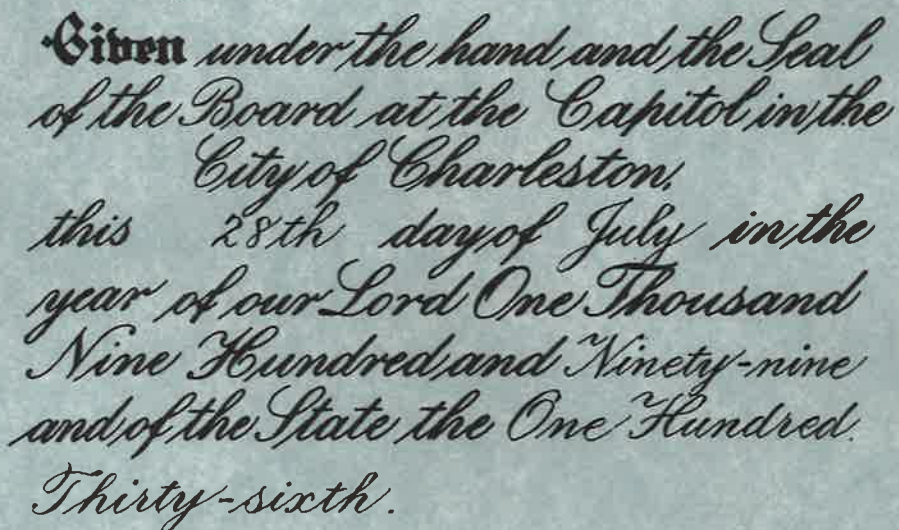 Given under the hand and the Seal
of the Board at the Capitol in the
City of Charleston,
this 28th day of July in the
year of our Lord One Thousand
Nine Hundred and Ninety-nine
and of the State the One Hundred.
Thirty-sixth.